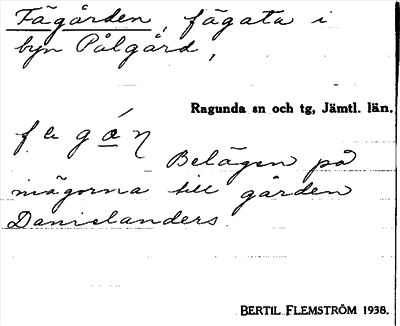 Fägården, fägata i
byn Pålgård,
Ragunda sn och tg, Jämtl. län.
Belägen på
inägorna till gården
Danielanders
BERTIL FLEMSTRÖM 1938.